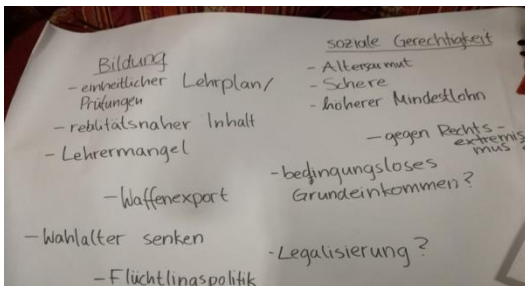 Bildung
- einheitlicher Lehrplan/
Prüfungen
- reblitätsnaher Inhalt
- Lehrermangel
- Waffenexport
- Wahlalter senken
- Flüchtlingspolitik
soziale Gerechtigkeit
- Altersarmut
- Schere
- höherer Mindestlohn
- gegen Rechts-
extremis-
mus
- bedingungsloses
Grundeinkommen?
- Legalisierung?